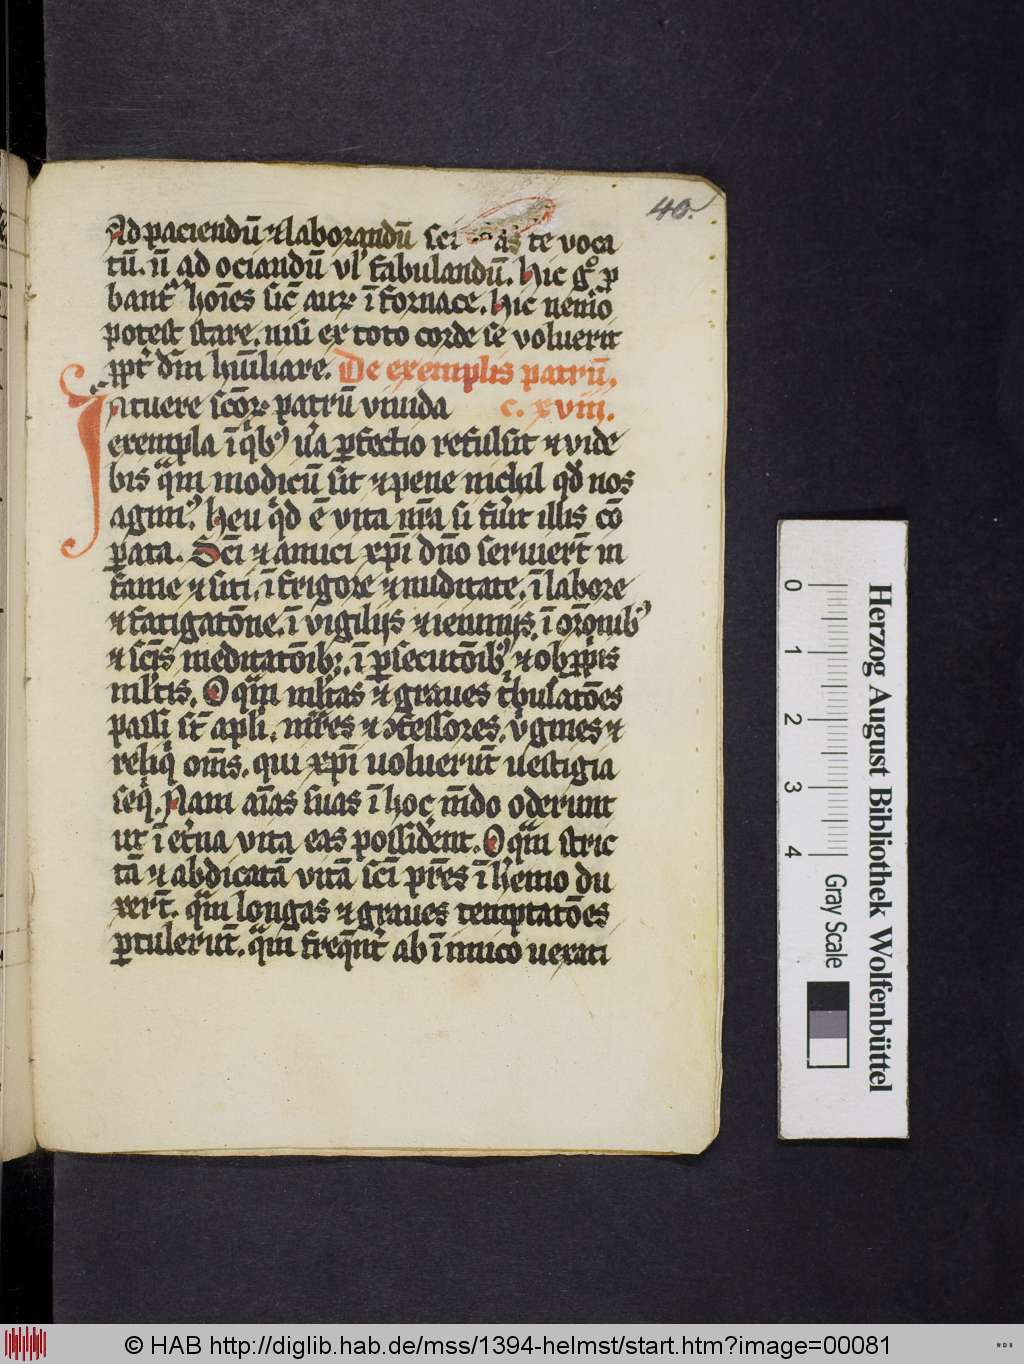 40.
Ad paciendū ⁊ laborandū sci as te voca
tū. n̄ ad ociandū vl' fabulandū. Hic gͦ ꝓ
bant᷑ hoīes sic̄ auꝝ ī fornace. Hic nemo
potest stare. nisi ex toto corde se voluerit
ꝓpt̓ dm̄ hūiliare. De exemplis patrū.
Intuere scōꝝ patrū viuida c. xviii.
exempla ī qͥbꝰ v̓a ꝑfectio refulsit ⁊ vide
bis qᷓm modicū sit ⁊ pene nichil qd̓ nos
agimꝰ. Heu qͥd ē vita nr̄a si fu̓it illis cō
ꝑata. Sc̄i ⁊ amici xp̄i dn̄o seruiert̄ in
fame ⁊ siti. ī frigore ⁊ nuditate. ī labore
⁊ fatigatōne. ī vigiliis ⁊ ieiuniis. ī orōnibꝰ
⁊ sc̄is meditatōibꝫ. ī ꝑsecutōibꝰ ⁊ obꝓpͥis
ml̓tis. O qᷓm ml̓tas ⁊ graues tͥbulatōes
passi st̄ apl̓i. mr̄es ⁊ ꝯfessores. v̓gines ⁊
reliqͥ om̄s. qui xp̄i uoluerūt uestigia
seqͥ. Nam aīas suas ī hoc mūdo oderunt
ut ī et̓na vita eas possid̓ent. O qᷓm stric
tā ⁊ abdicatā vitā sc̄i pr̄es ī h̓emo du
xert̄. qᷓm longas ⁊ graues temptatōes
ꝑtulerūt. qᷓm freqn̄t̓ ab īimico uexati
Herzog August Bibliothek Wolfenbüttel
0 1 2 3 4
Gray Scale
© HAB http://diglib.hab.de/mss/1394-helmst/start.htm?image=00081